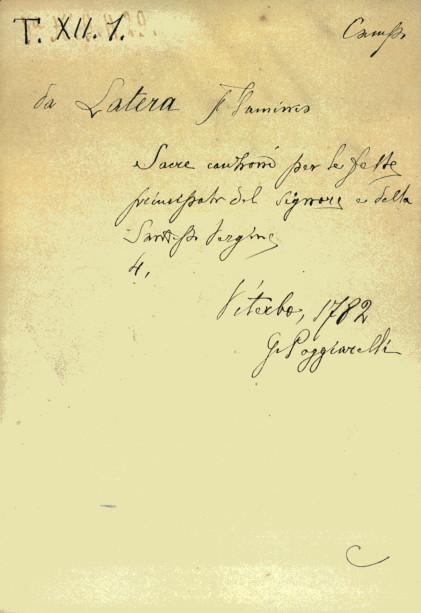 T. XII. 1.
Camp.
da Latera Flaminio
Sacre canzoni per le feste
principali del Signore e della
Santiss. Vergine
4,
Viterbo, 1782
G. Poggiarelli